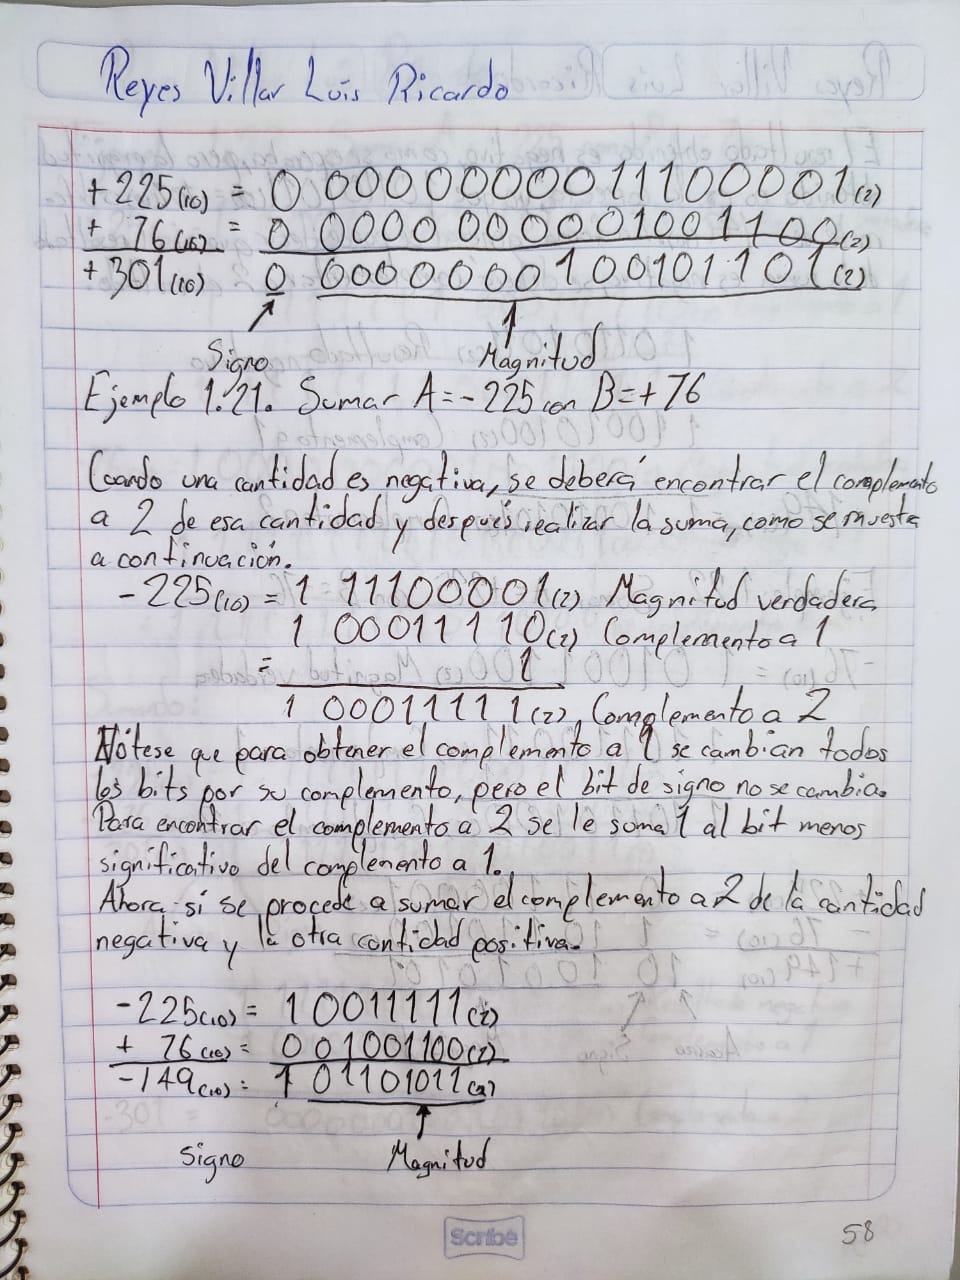 Reyes Villar Luis Ricardo
+225(10) = 0 000000001110 0001(2)
+ 76(10) = 0 0000 0000 01001100(2)
+301(10) 0 0000000100101101(2)
Signo Magnitud
Ejemplo 1.21. Sumar A=-225 con B=+76
Cuando una cantidad es negativa, se deberá encontrar el complemento
a 2 de esa cantidad y después realizar la suma, como se muesta
a continuación.
-225(10) = 1 11100001(2) Magnitud verdadera
1 00011110(2) Complemento a 1
= 1
1 00011111(2) Complemento a 2
Nótese que para obtener el complemento a 1 se cambian todos
los bits por su complemento, pero el bit de signo no se cambia.
Para encontrar el complemento a 2 se le suma 1 al bit menos
significativo del complemento a 1.
Ahora si se procede a sumar el complemento a 2 de la cantidad
negativa y la otra cantidad positiva.
-225(10) = 1 0011111(2)
+ 76(10) = 0 01001100(2)
-149(10) = 1 01101011(2)
Signo Magnitud
Scribe
58